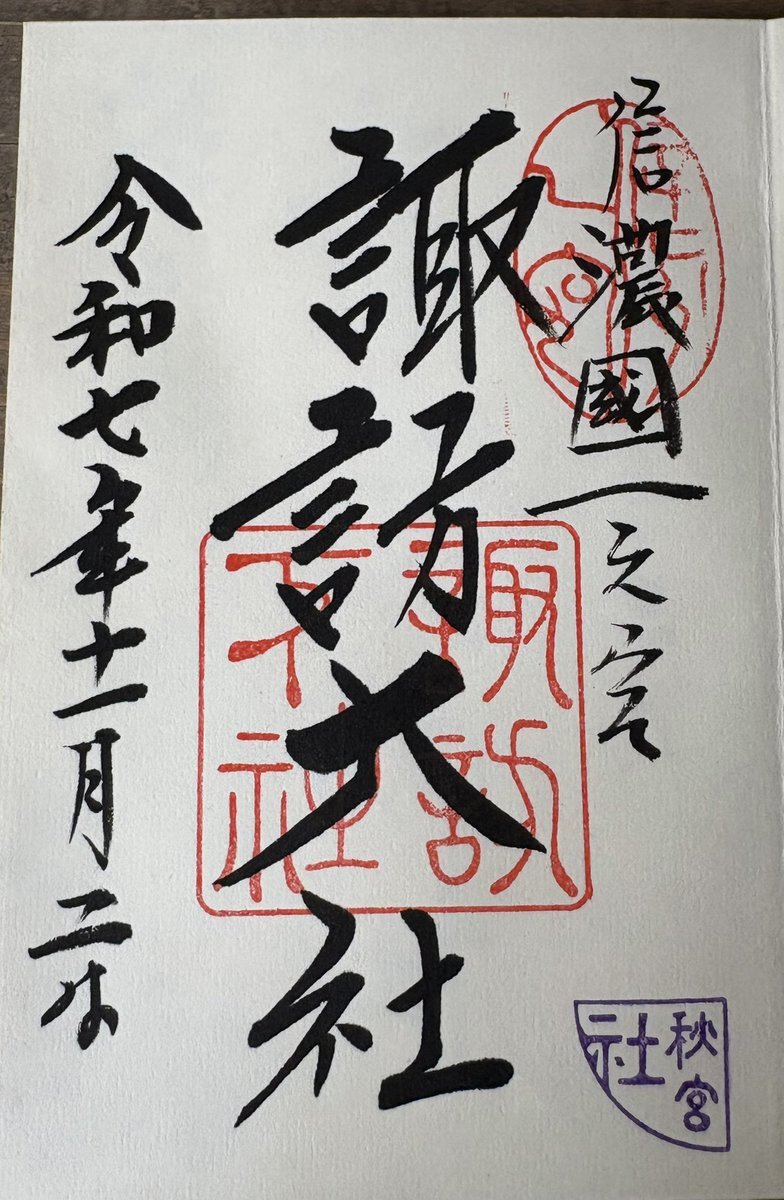 信濃國一之宮
諏訪大社
令和七年十一月二日
諏訪
大社
秋宮
社